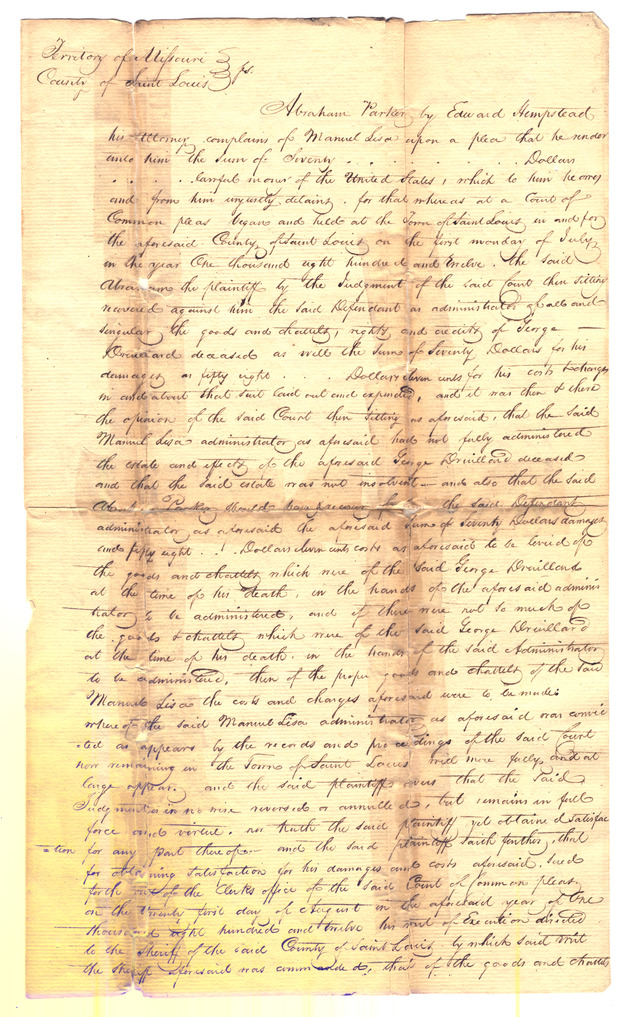 Territory of Missouri
County of Saint Louis } ss.
Abraham Parker by Edward Hempstead
his attorney complains of Manuel Lisa upon a plea that he render
unto him the sum of Seventy . . . . . . . Dollars
. . . . lawful money of the United States, which to him he owes
and from him unjustly detains. for that whereas at a Court of
Common pleas began and held at the Town of Saint Louis in and for
the aforesaid County of Saint Louis on the first monday of July
in the year One thousand eight hundred and twelve. the said
Abraham the plaintiff by the Judgment of the said Court then sitting
recovered against him the said Defendant as administrator of all and
singular the goods and chattels, rights and credits of George —
Druillard deceased as well the sum of Seventy Dollars for his
damages as fifty eight . . Dollars eleven cents for his costs & charges
in and about that suit laid out and expended, and it was then & there
the opinion of the said Court then sitting as aforesaid, that the said
Manuel Lisa administrator as aforesaid had not fully administered
the estate and effects of the aforesaid George Druillard deceased
and that the said estate was not insolvent — and also that the said
Abraham Parker should have execution the said Defendant
administrator as aforesaid the aforesaid sum of Seventy Dollars damages
and fifty eight . . Dollars eleven cents costs as aforesaid to be levied of
the goods and chattels which were of the said George Druillard
at the time of his death, in the hands of the aforesaid adminis
trator to be administered, and if there were not so much of
the goods & chattels which were of the said George Druillard
at the time of his death. in the hands of the said Administrator
to be administered, then of the proper goods and chattels of the said
Manuel Lisa the costs and charges aforesaid were to be made.
whereof the said Manuel Lisa administrator as aforesaid was convic
=ted as appears by the records and proceedings of the said Court
now remaining in the Town of Saint Louis will more fully and at
large appear. and the said plaintiff avers that the said
Judgment is in no wise reversed or annulled, but remains in full
force and virtue. nor hath the said plaintiff yet obtained Satisfac
=tion for any part thereof — and the said plaintiff saith further, that
for obtaining satisfaction for his damages and costs aforesaid. sued
forth out of the Clerks office of the said Court of Common pleas.
on the twenty first day of August in the aforesaid year of One
thousand eight hundred and twelve his writ of Execution directed
to the sheriff of the said County of Saint Louis, by which said writ
the sheriff aforesaid was commanded, that of the goods and chattels